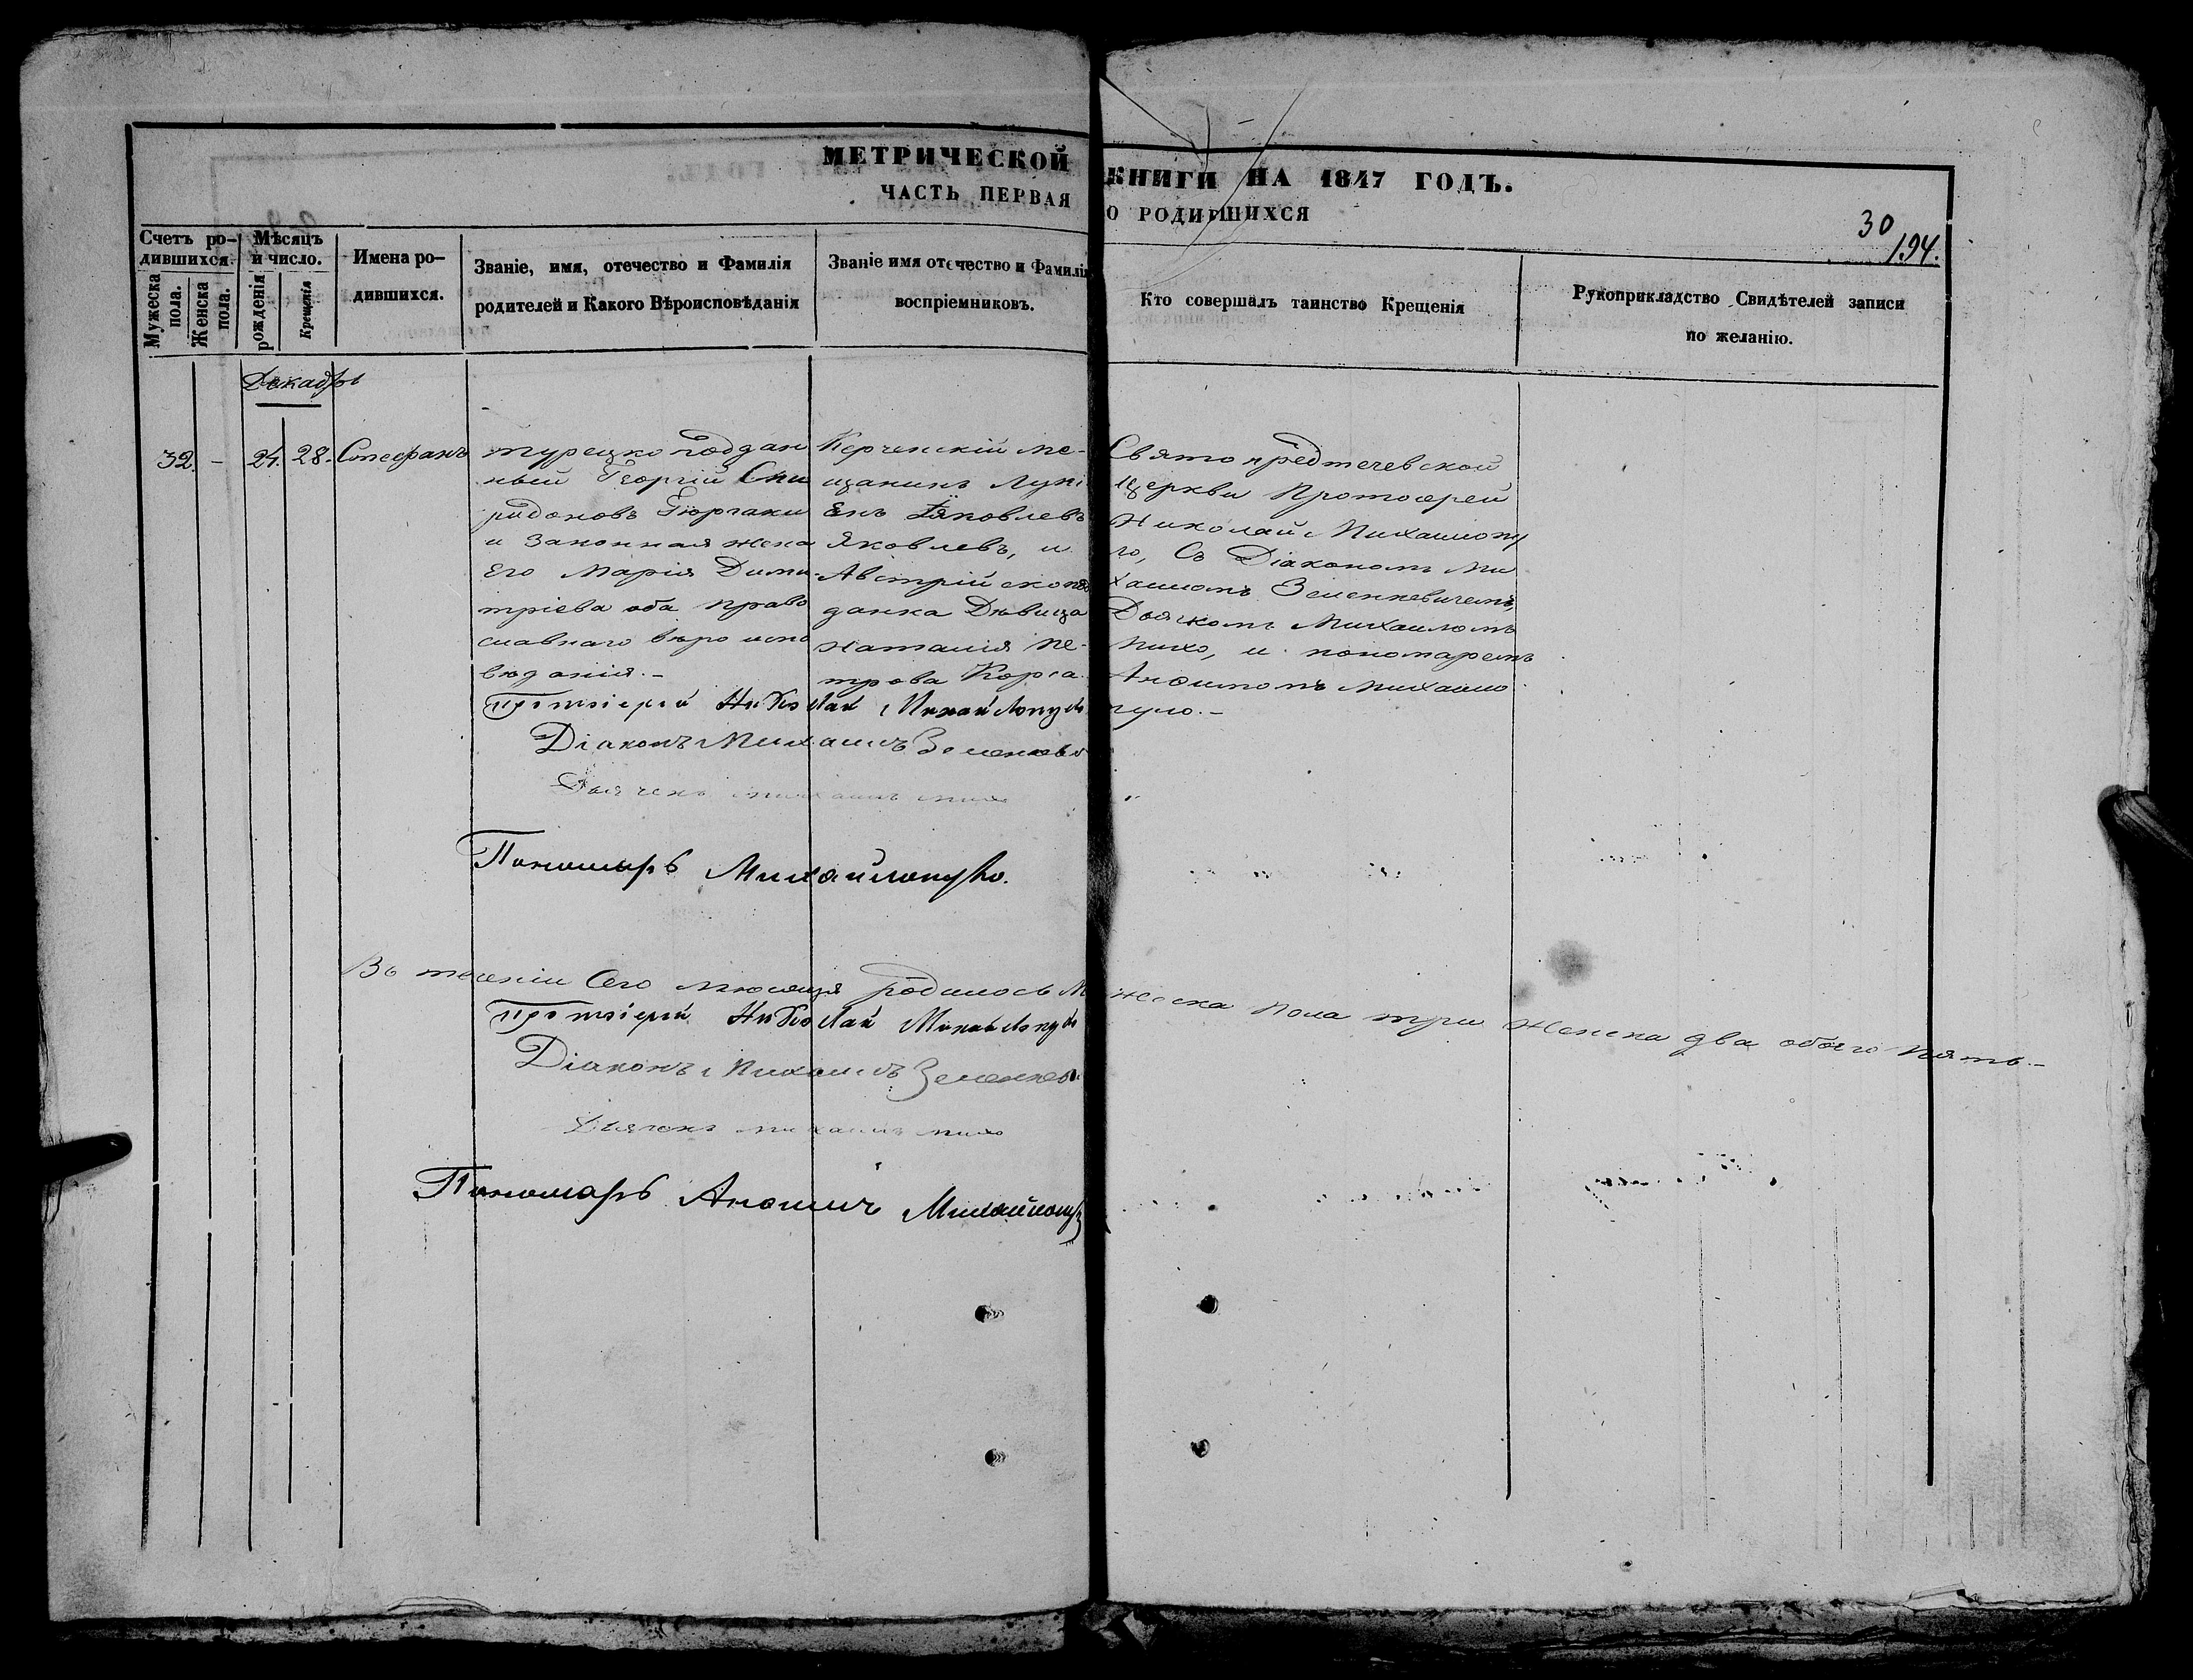 МЕТРИЧЕСКОЙ КНИГИ НА 1847 ГОДЪ.
ЧАСТЬ ПЕРВАЯ О РОДИВШИХСЯ
30
194.
Счетъ ро-
дившихся.
Мужеска
пола.
Женска
пола.
Мѣсяцъ
и число.
рожденія
Крещенія
Имена ро-
дившихся.
Званіе, имя, отечество и Фамилія
родителей и Какого Вѣроисповѣданія
Званіе имя отечество и Фамилія
воспріемниковъ.
Кто совершалъ таинство Крещенія
Рукоприкладство Свидѣтелей записи
по желанію.
Декабрь
32. - 24. 28. Стефанъ
турецко поддан
ный Георгій Спи
ридоновъ Гюргаки
и Законная жена
Его Марія Дими-
тріева оба право
славнаго вѣро испо
вѣданія.-
Керченскій ме-
щанинъ Лукі
Енъ Яковлевъ
Яковлевъ, и
Австрійско под
данка Дѣвица
Наталія Пе-
трова Корса
Свято предтечевской
Церкви Протоіерей
Николай Михаилопу
ло, Съ Діакономъ Ми
хаиломъ Зеленкевичемъ,
Дьячкомъ Михаиломъ
Михо, и пономаремъ
Анѳимомъ Михаило
пуло.-
Протоіерей Николай Михайлопуло
Діаконъ Михаилъ Зеленкеви
Дьячекъ Михаилъ Михо
Пономарь Михайлопуло.
Въ теченіи Сего мѣсяца родилось Мужеска пола три Женска два обоего пять.-
Протоіерей Николай Михайлопуло
Діаконъ Михаилъ Зеленкеви
Дьячекъ Михаилъ Михо
Пономарь Анѳимъ Михайлопуло